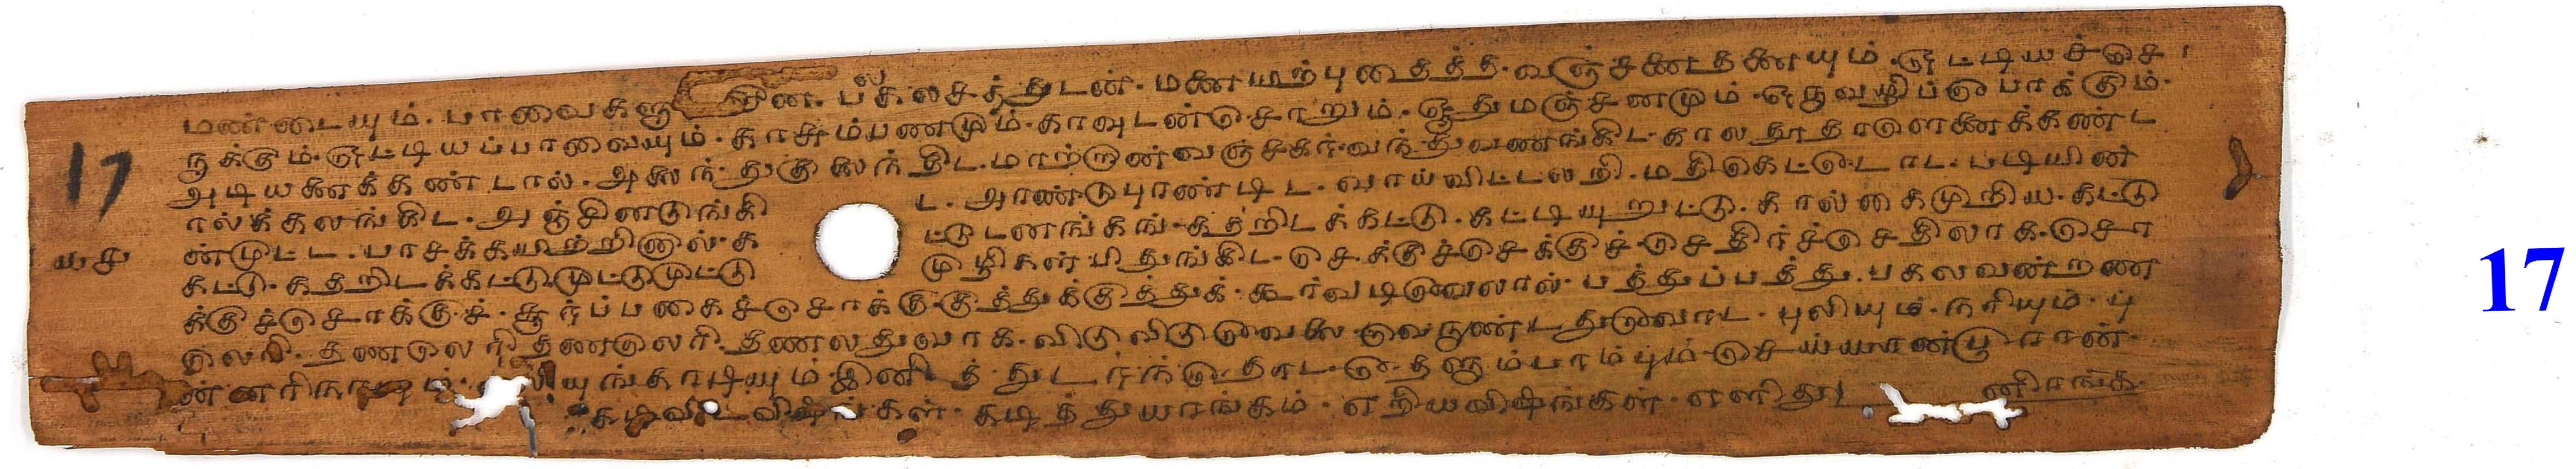 மண்டையும். பாவைகளு னே. பலகலசத்துடன். மணையற்புதைத்த. வஞ்சனைதனையும். ஒட்டியச்செ
ருக்கும். ஒட்டியப்பாவையும். காசும்பணமும். காவுடன்சோறும். ஓதுமஞ்சனமும். ஒருவழிப்போக்கும்.
17 அடியனைக்கண்டால். அலைந்துகுலைந்திட. மாற்றாண்வஞ்சகர். வந்துவணங்கிட. காலதூதாளெனைக்கண்ட
ால்க்கலங்கிட. அஞ்சிநடுங்கி ட. அரண்டுபுரண்டிட. வாய்விட்டலறி. மதிகெட்டோட. படியின
யசு ண்முட்ட. பாசக்கயிற்றினால். க ட்டுடனங்கங். கதறிடக்கட்டு. கட்டியுறுட்டு. கால்கைமுறிய. கட்டு
கட்டு. கதறிடக்கட்டுமுட்டுமுட்டு முழிகள்பிதுங்கிட. செக்குச்செக்குச். செதிர்ச்செதிலாக. சொ
க்குச்சொக்குச். சூர்ப்பகைச்சொக்கு. குத்துக்குத்துக். கூர்வடிவேலால். பத்துப்பத்து. பகலவன்றண
லெரி. தணலெரி தணலெரி. தணலதுவாக. விடுவிடுவேலை. வெருண்டதுவோட. புலியும். நரியும். பு
ன்னரிநாயும். யுங்கரடியும் இனித்துடர்ந்தோட. தேளும்பாம்பும். செய்யான்பூரான்.
கடிவிடவிஷங்கள். கடித்துயரங்கம். ஏறியவிஷங்கள். எளிது னிறங்க.
17